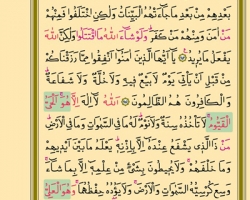 بَعْدِهِمْ مِنْ بَعْدِ مَا جَاۤءَتْهُمُ الْبَيِّنَاتُ وَلٰكِنِ اخْتَلَفُوا فَمِنْهُمْ
مَنْ اٰمَنَ وَمِنْهُمْ مَنْ كَفَرَ وَلَوْ شَاۤءَ اللّٰهُ مَا اقْتَتَلُوا وَلٰكِنَّ اللّٰهَ
يَفْعَلُ مَا يُرِيدُ يَاۤ اَيُّهَا الَّذِينَ اٰمَنُوۤا اَنْفِقُوا مِمَّا رَزَقْنَاكُمْ
مِنْ قَبْلِ اَنْ يَأْتِيَ يَوْمٌ لَا بَيْعٌ فِيهِ وَلَا خُلَّةٌ وَلَا شَفَاعَةٌ
وَالْكَافِرُونَ هُمُ الظَّالِمُونَ اَللّٰهُ لَاۤ اِلٰهَ اِلَّا هُوَ اَلْحَيُّ
الْقَيُّومُ لَا تَأْخُذُهُ سِنَةٌ وَلَا نَوْمٌ لَهُ مَا فِي السَّمٰوَاتِ وَمَا فِي الْاَرْضِ
مَنْ ذَا الَّذِي يَشْفَعُ عِنْدَهُ اِلَّا بِاِذْنِهِ يَعْلَمُ مَا بَيْنَ اَيْدِيهِمْ
وَمَا خَلْفَهُمْ وَلَا يُحِيطُونَ بِشَيْءٍ مِنْ عِلْمِهِ اِلَّا بِمَا شَاۤءَ
وَسِعَ كُرْسِيُّهُ السَّمٰوَاتِ وَالْاَرْضَ وَلَا يَؤُدُهُ حِفْظُهُمَا وَهُوَ الْعَلِيُّ